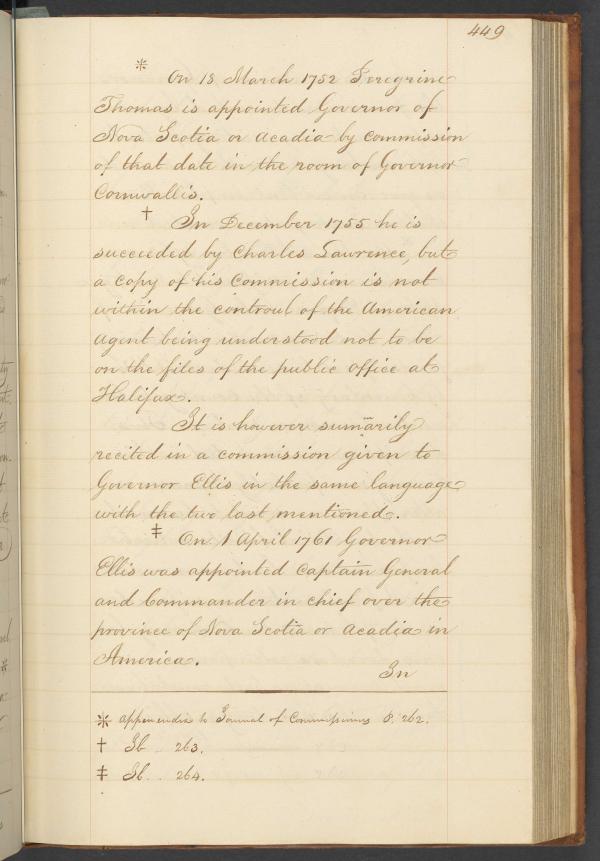 449
* On 18 March 1752 Peregrine
Thomas is appointed Governor of
Nova Scotia or Acadia by commission
of that date in the room of Governor
Cornwallis.
† In December 1755 he is
succeeded by Charles Lawrence, but
a copy of his commission is not
within the controul of the American
Agent being understood not to be
on the files of the public office at
Halifax.
It is however sumarily
recited in a commission given to
Governor Ellis in the same language
with the two last mentioned.
‡ On 1 April 1761 Governor
Ellis was appointed Captain General
and Commander in chief over the
province of Nova Scotia or Acadia in
America.
In
* appendix to Journal of Commissions P. 262.
† Ib .. 263.
‡ Ib .. 264.